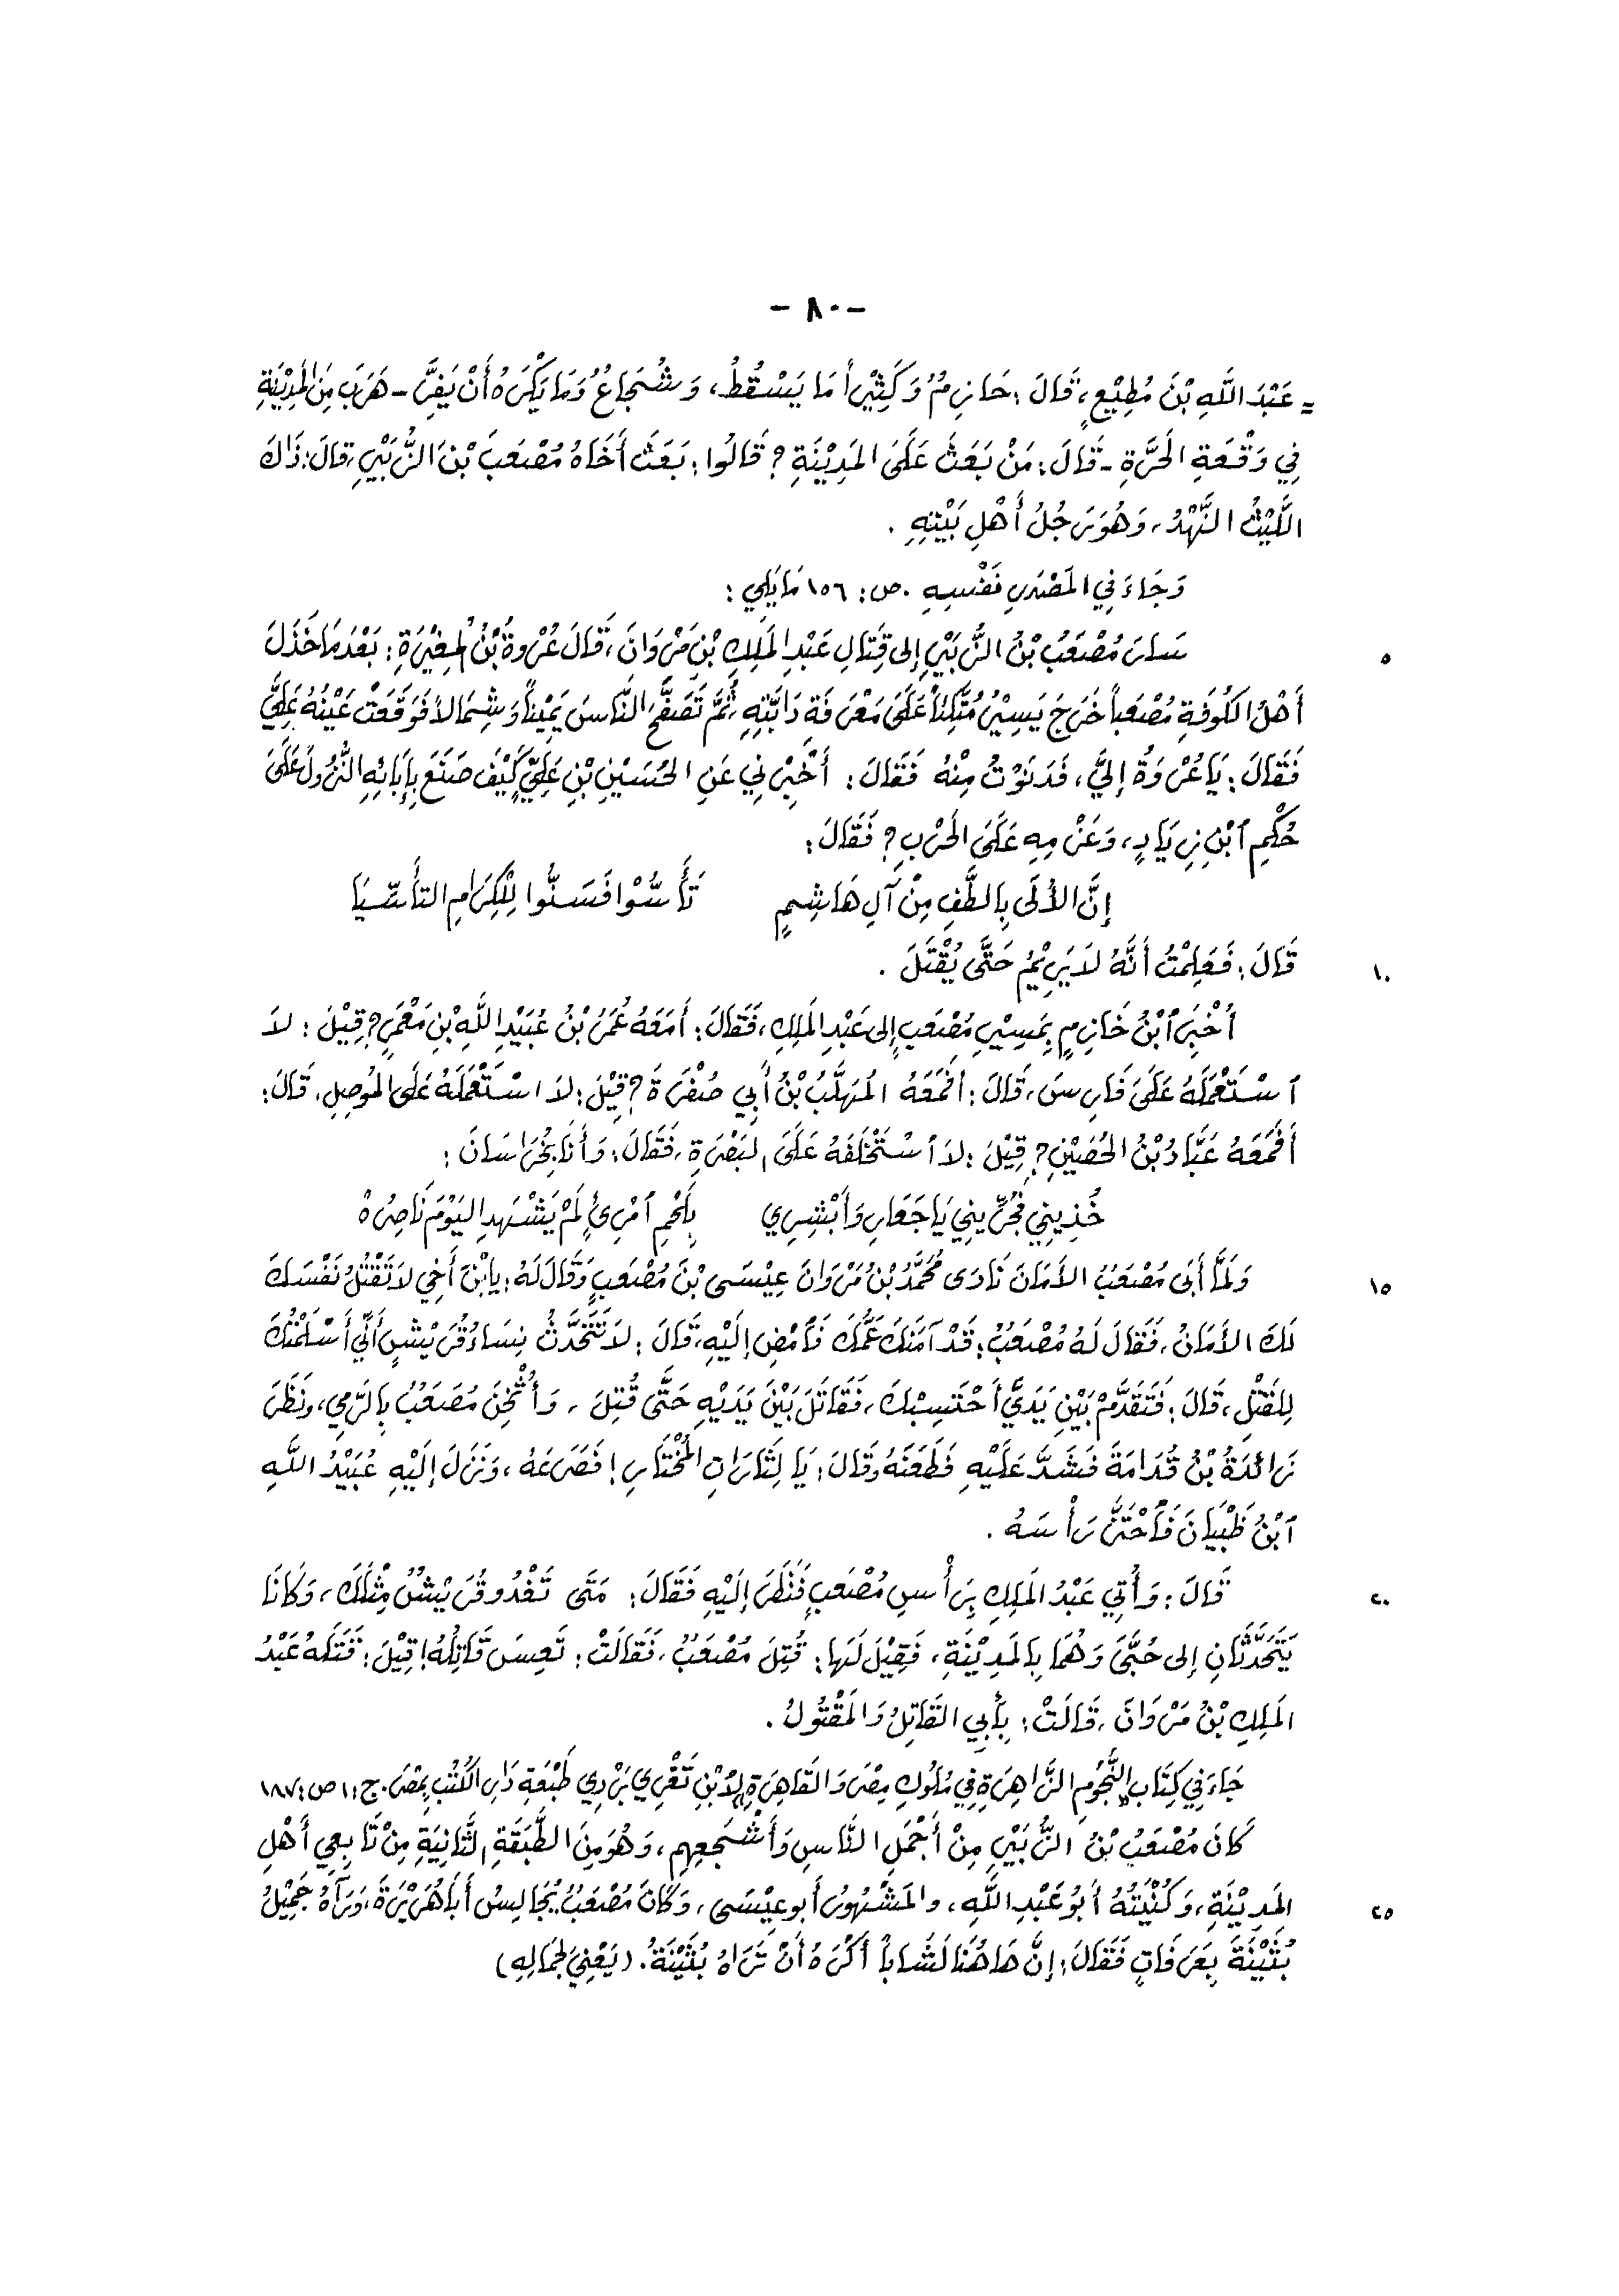 - ٨٠ -
= عَبْدَ اللَّهِ بْنَ مُطِيْعٍ، قَالَ: حَازِمٌ وَكَثِيْراً مَا يَسْقُطُ، وَشُجَاعٌ وَمَا يَكْرَهُ أَنْ يَفِرَّ - هَرَبَ مِنَ المَدِيْنَةِ
فِي وَقْعَةِ الحَرَّةِ - قَالَ: مَنْ بَعَثَ عَلَى المَدِيْنَةِ؟ قَالُوا: بَعَثَ أَخَاهُ مُصْعَبَ بْنَ الزُّبَيْرِ، قَالَ: ذَاكَ
اللَّيْثُ النَّهْدُ، وَهُوَ رَجُلُ أَهْلِ بَيْتِهِ .
وَجَاءَ فِي المَصْدَرِ نَفْسِهِ . ص: ١٥٦ مَا يَلِي :
٥ سَارَ مُصْعَبُ بْنُ الزُّبَيْرِ إِلى قِتَالِ عَبْدِ المَلِكِ بْنِ مَرْوَانَ، قَالَ عُرْوَةُ بْنُ المُغِيْرَةِ: بَعْدَمَا خَذَلَ
أَهْلُ الكُوفَةِ مُصْعَباً خَرَجَ يَسِيْرُ مُتَّكِئاً عَلَى مَعْرَفَةِ دَابَّتِهِ، ثُمَّ تَصَفَّحَ النَّاسَ يَمِيْناً وَشِمَالاً فَوَقَعَتْ عَيْنُهُ عَلَيَّ
فَقَالَ: يَا عُرْوَةُ إِليَّ، فَدَنَوْتُ مِنْهُ فَقَالَ: أَخْبِرْنِي عَنِ الحُسَيْنِ بْنِ عَلِيٍّ كَيْفَ صَنَعَ بِإِبَائِهِ النُّزُولَ عَلَى
حُكْمِ ٱبْنِ زِيَادٍ، وَعَزْمِهِ عَلَى الحَرْبِ؟ فَقَالَ:
إِنَّ الأُلَى بِالطَّفِّ مِنْ آلِ هَاشِمٍ تَأَسَّوْا فَسَنُّوا لِلْكِرَامِ التأَسِّيَا
١٠ قَالَ: فَعَلِمْتُ أَنَّهُ لاَ يَرِيْمُ حَتَّى يُقْتَلَ .
أُخْبِرَ ٱبْنُ خَازِمٍ بِمَسِيْرِ مُصْعَبٍ إِلى عَبْدِ المَلِكِ، فَقَالَ: أَمَعَهُ عُمَرُ بْنُ عُبَيْدِ اللَّهِ بْنِ مَعْمَرٍ؟ قِيْلَ: لاَ
ٱسْتَعْمَلَهُ عَلَى فَارِسَ، قَالَ: أَفَمَعَهُ المُهَلَّبُ بْنُ أَبِي صُفْرَةَ؟ قِيْلَ: لاَ اسْتَعْمَلَهُ عَلَى المُوصِلِ، قَالَ:
أَفَمَعَهُ عَبَّادُ بْنُ الحُصَيْنِ؟ قِيْلَ: لاَ ٱسْتَخْلَفَهُ عَلَى البَصْرَةِ، فَقَالَ: وَأَنَا بِخُرَاسَانَ:
خُذِيْنِي فَجُرِّيْنِي يَا جَعَارِ وَأَبْشِرِي بِلَحْمِ ٱمْرِئٍ لَمْ يَشْهَدِ اليَوْمَ نَاصِرُهْ
١٥ وَلَمَّا أَبَى مُصْعَبُ الأَمَانَ نَادَى مُحَمَّدُ بْنُ مَرْوَانَ عِيْسَى بْنَ مُصْعَبٍ وَقَالَ لَهُ: يابْنَ أَخِي لاَ تَقْتُلْ نَفْسَكَ
لَكَ الأَمَانُ، فَقَالَ لَهُ مُصْعَبُ: قَدْ آمَنَكَ عَمُّكَ فَٱمْضِ إِلَيْهِ، قَالَ: لاَ تَتَحَدَّثُ نِسَاءُ قُرَيْشٍ أَنِّي أَسْلَمْتُكَ
لِلقَتْلِ، قَالَ: فَتَقَدَّمْ بَيْنَ يَدَيَّ أَحْتَسِبْكَ، فَقَاتَلَ بَيْنَ يَدَيْهِ حَتَّى قُتِلَ، وَأُثْخِنَ مُصْعَبُ بِالرَّمِي، وَنَظَرَ
زَائِدَةُ بْنُ قُدَامَةَ فَشَدَّ عَلَيْهِ فَطَعَنَهُ وَقَالَ: يَا لَثَارَاتِ المُخْتَارِ! فَصَرَعَهُ، وَنَزَلَ إِلَيْهِ عُبَيْدُ اللَّهِ
ٱبْنُ ظَبْيَانَ فَٱحْتَزَّ رَأْسَهُ .
٢٠ قَالَ: وَأُتِي عَبْدُ المَلِكِ بِرَأْسِ مُصْعَبٍ فَنَظَرَ إِلَيْهِ فَقَالَ: مَتَى تَغْدُو قُرَيْشٌ مِثْلَكَ، وَكَانَا
يَتَحَدَّثَانِ إِلى حُبَّى وَهُمَا بِالمَدِيْنَةِ، فَقِيْلَ لَهَا: قُتِلَ مُصْعَبُ، فَقَالَتْ: تَعِسَ قَاتِلُهُ! قِيْلَ: قَتَلَهُ عَبْدُ
المَلِكِ بْنُ مَرْوَانَ، قَالَتْ: بِأَبِي القَاتِلُ وَالمَقْتُولُ .
جَاءَ فِي كِتَابِ «النُّجُومِ الزَّاهِرَةِ فِي مُلُوكِ مِصْرَ وَالقَاهِرَةِ» لِابْنِ تَغْرِي بَرْدِي طَبْعَةِ دَارِ الكُتُبِ بِمِصْرَ . ج: ١ ص: ١٨٧
كَانَ مُصْعَبُ بْنُ الزُّبَيْرِ مِنْ أَجْمَلِ النَّاسِ وَأَشْجَعِهِم، وَهُوَ مِنَ الطَّبَقَةِ الثَّانِيَةِ مِنْ تَابِعِي أَهْلِ
٢٥ المَدِيْنَةِ، وَكُنْيَتُهُ أَبُو عَبْدِ اللَّهِ، وَالمَشْهُورُ أَبو عِيْسَى، وَكَانَ مُصْعَبُ يُجَالِسُ أَبَا هُرَيْرَةَ، وَرَآهُ جَمِيْلُ
بُثَيْنَةَ بِعَرَفَاتٍ فَقَالَ: إِنَّ هَاهُنَا لَشَاباً أَكْرَهُ أَنْ تَرَاهُ بُثَيْنَةُ. (يَعْنِي لِجَمَالِهِ)